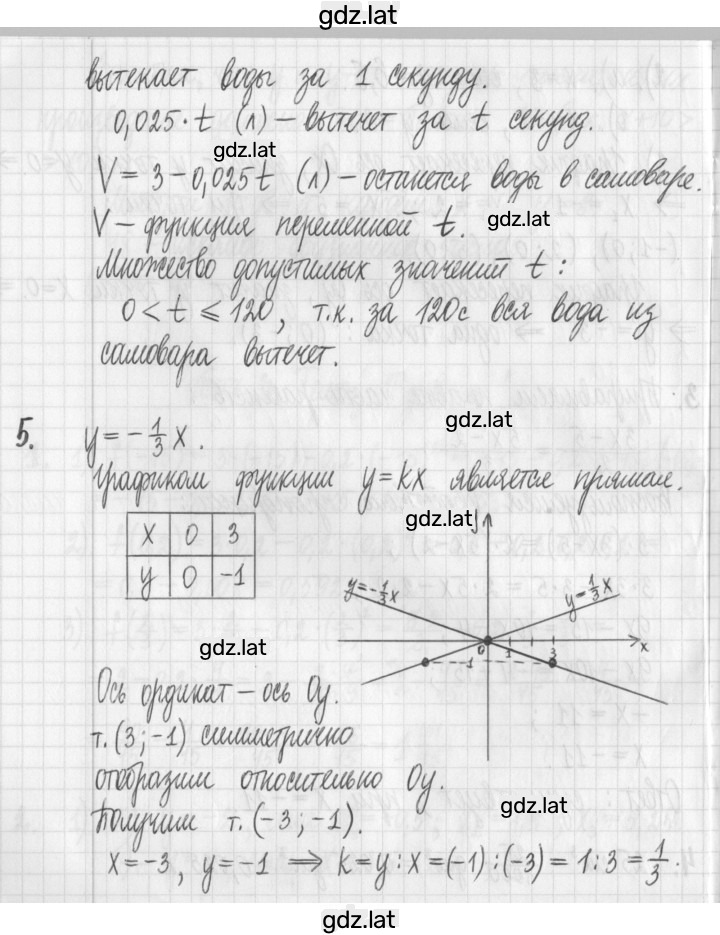 gdz.lat
вытекает воды за 1 секунду.
0,025·t (л) – вытечет за t секунд.
gdz.lat
V = 3 – 0,025t (л) – останется воды в самоваре.
V – функция переменной t. gdz.lat
Множество допустимых значений t:
0 < t ⩽ 120, т.к. за 120с вся вода из
самовара вытечет.
gdz.lat
5. y = – 1/3 x.
Графиком функции y = kx является прямая.
gdz.lat y
x 0 3
y 0 –1
y=–1/3x y=1/3x
0 1 3 x
gdz.lat
–1
Ось ординат – ось Oy.
т. (3; –1) симметрично
отобразим относительно Oy.
gdz.lat
Получим т. (–3; –1).
x = –3, y = –1 ⟹ k = y : x = (–1) : (–3) = 1 : 3 = 1/3.
gdz.lat